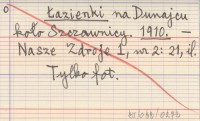 Łazienki na Dunajcu
koło Szczawnicy. 1910. —
Nasze Zdroje 1, nr 2: 21, il.
Tylko fot.